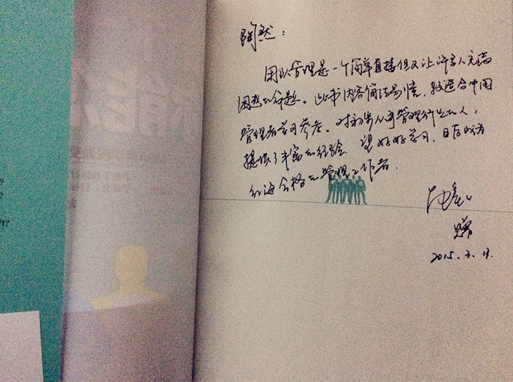 陶然：
团队管理是一个简单直接但又让许多人充满
困惑的命题。此书内容简洁易懂，较适合中国
管理者学习参考。对初步从事管理行业的人，
提供了丰富的经验。望好好学习，日后成为
合格的管理工作者。
赠
2015.3.13.